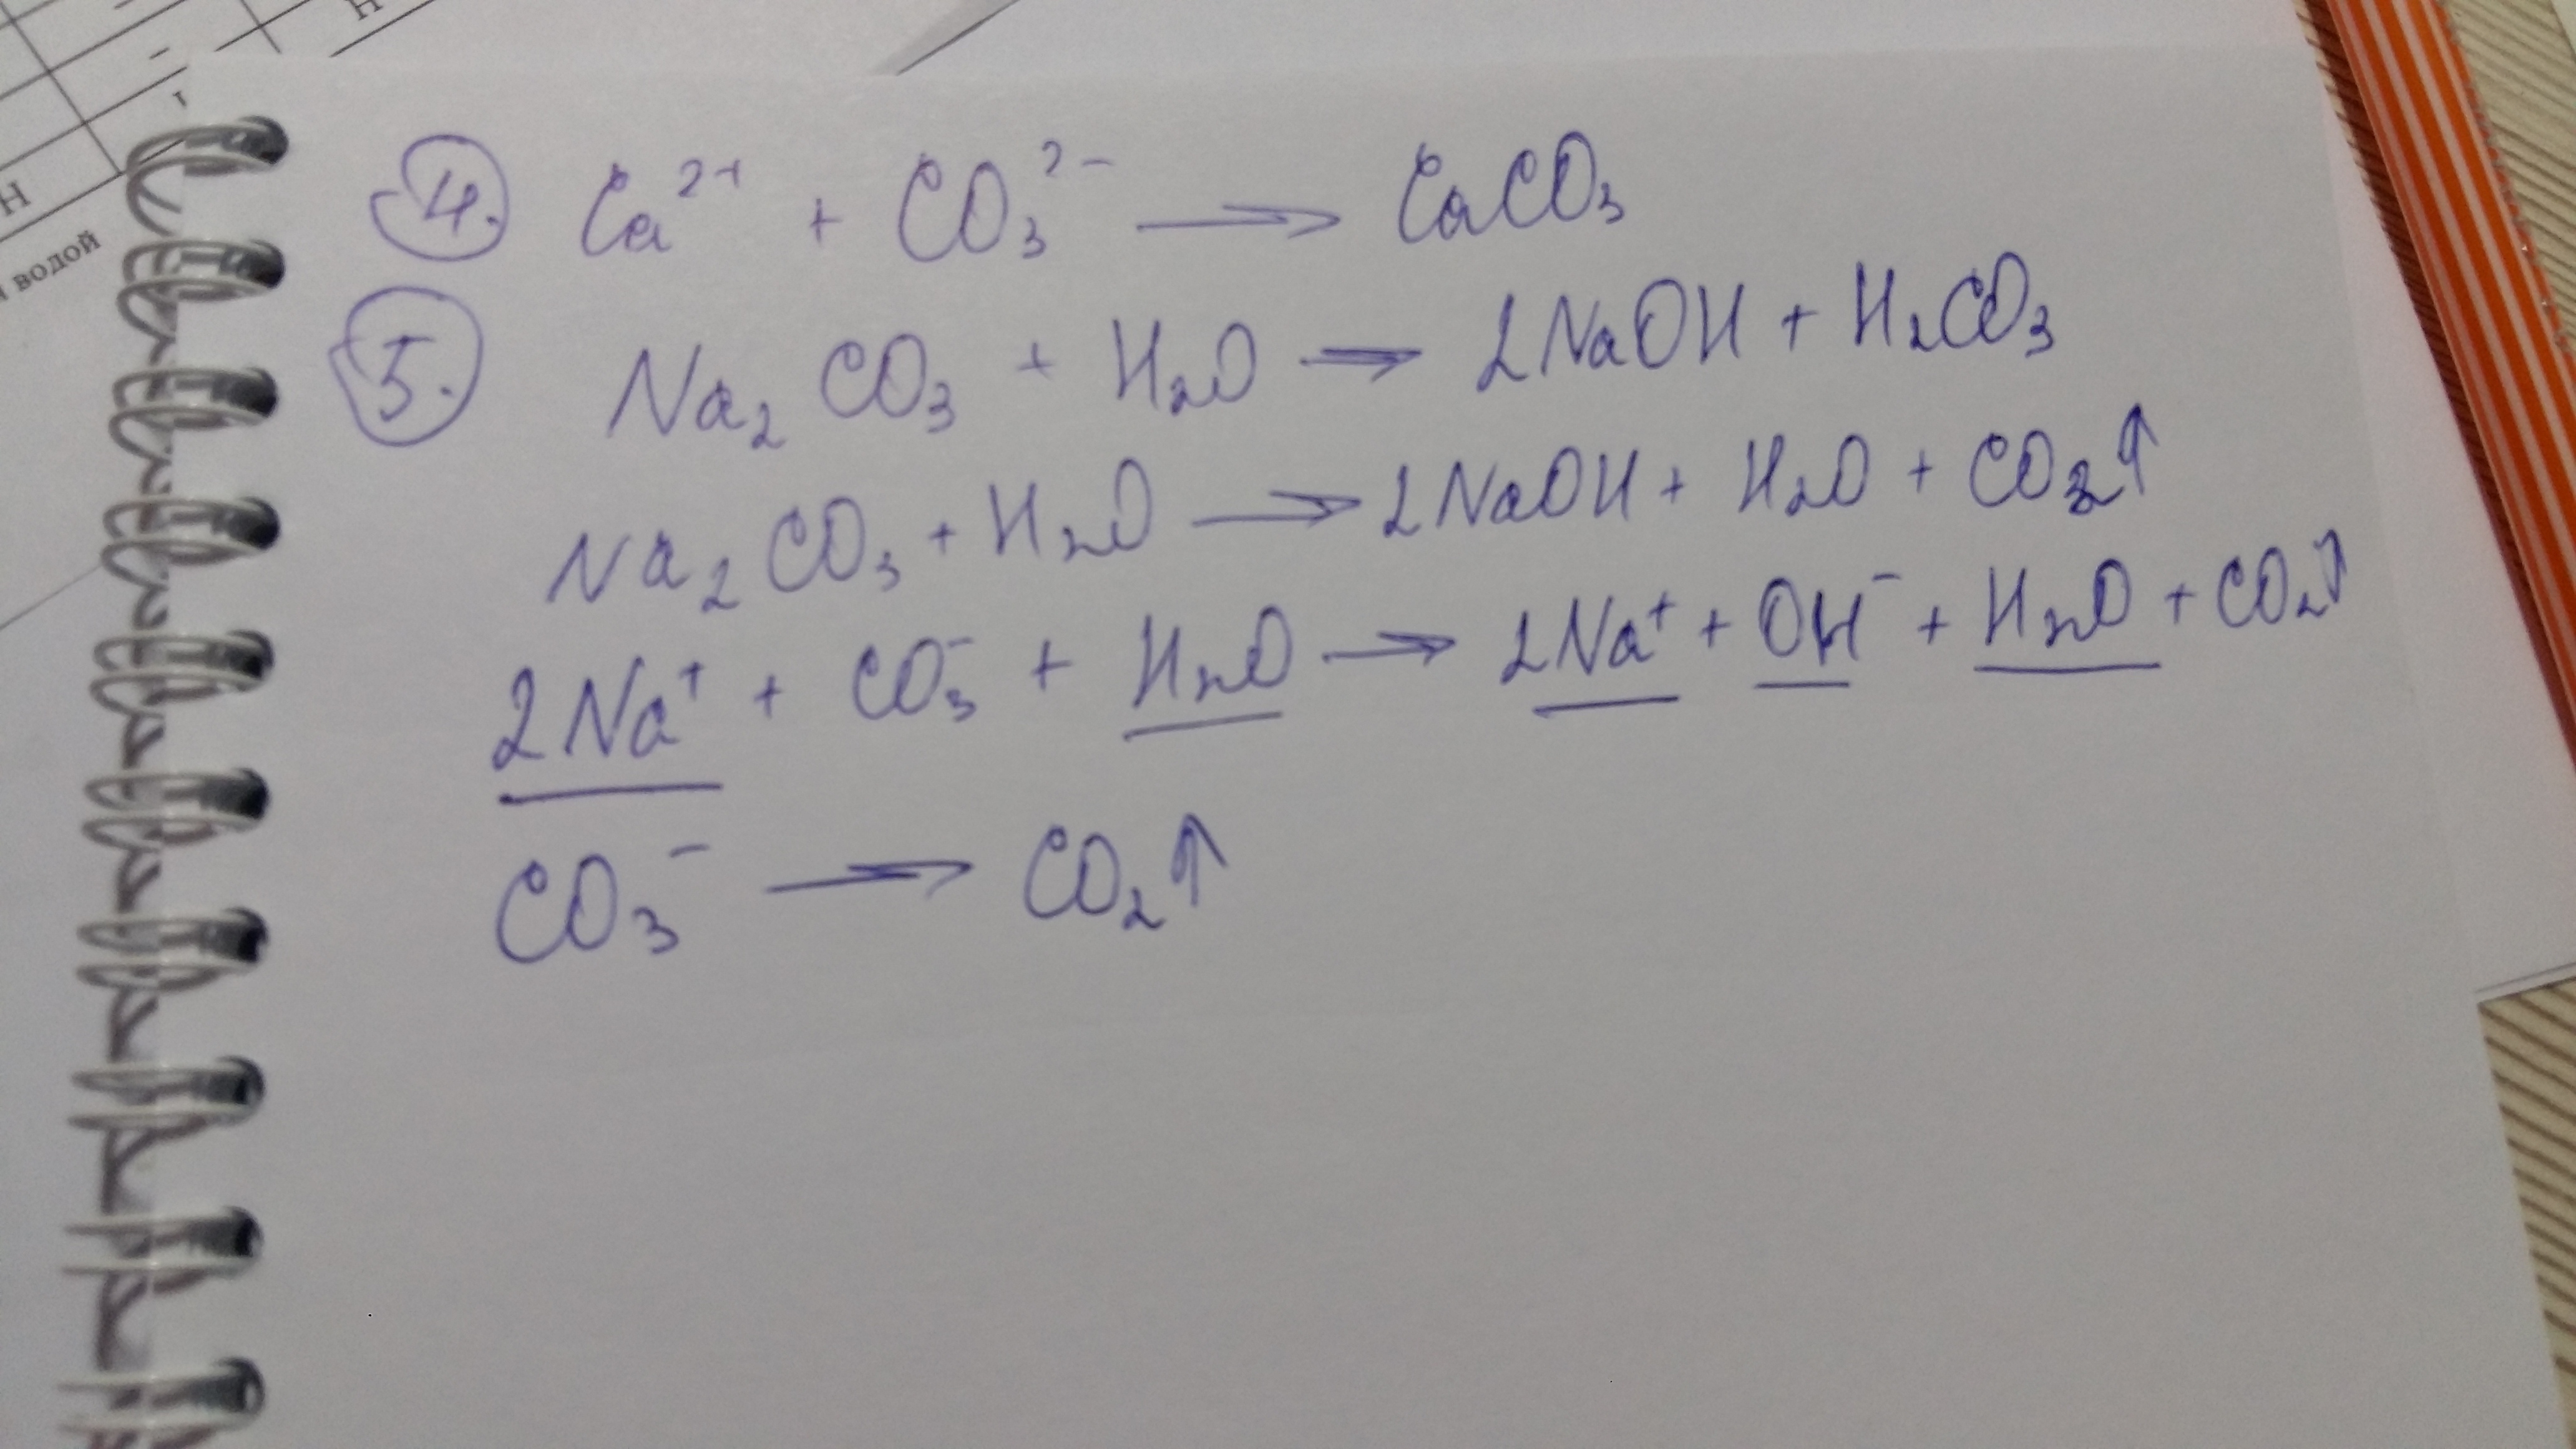 Н
Н
и водой
4. Ca²⁺ + CO₃²⁻ → CaCO₃
5. Na₂CO₃ + H₂O → 2NaOH + H₂CO₃
Na₂CO₃ + H₂O → 2NaOH + H₂O + CO₂↑
2Na⁺ + CO₃⁻ + H₂O → 2Na⁺ + OH⁻ + H₂O + CO₂↑
CO₃⁻ → CO₂↑